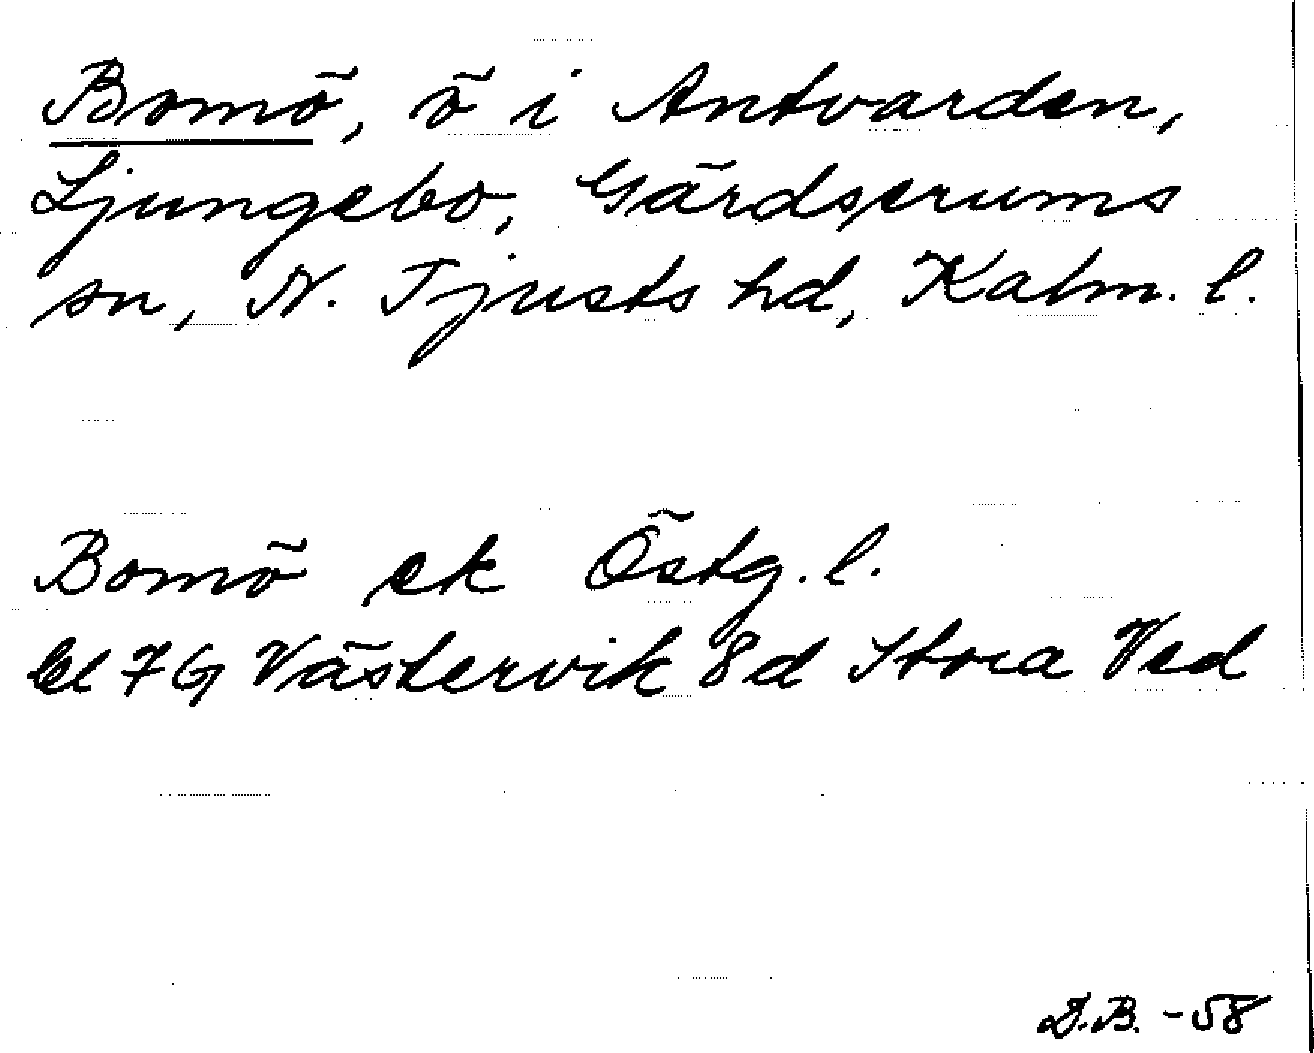 Bomö, ö i Antvarden,
Ljungebo, Gärdserums
sn, N. Tjusts hd, Kalm. l.
Bomö ek Östg. l.
bl 7G Västervik 8d Stora Ved
D.B. -58